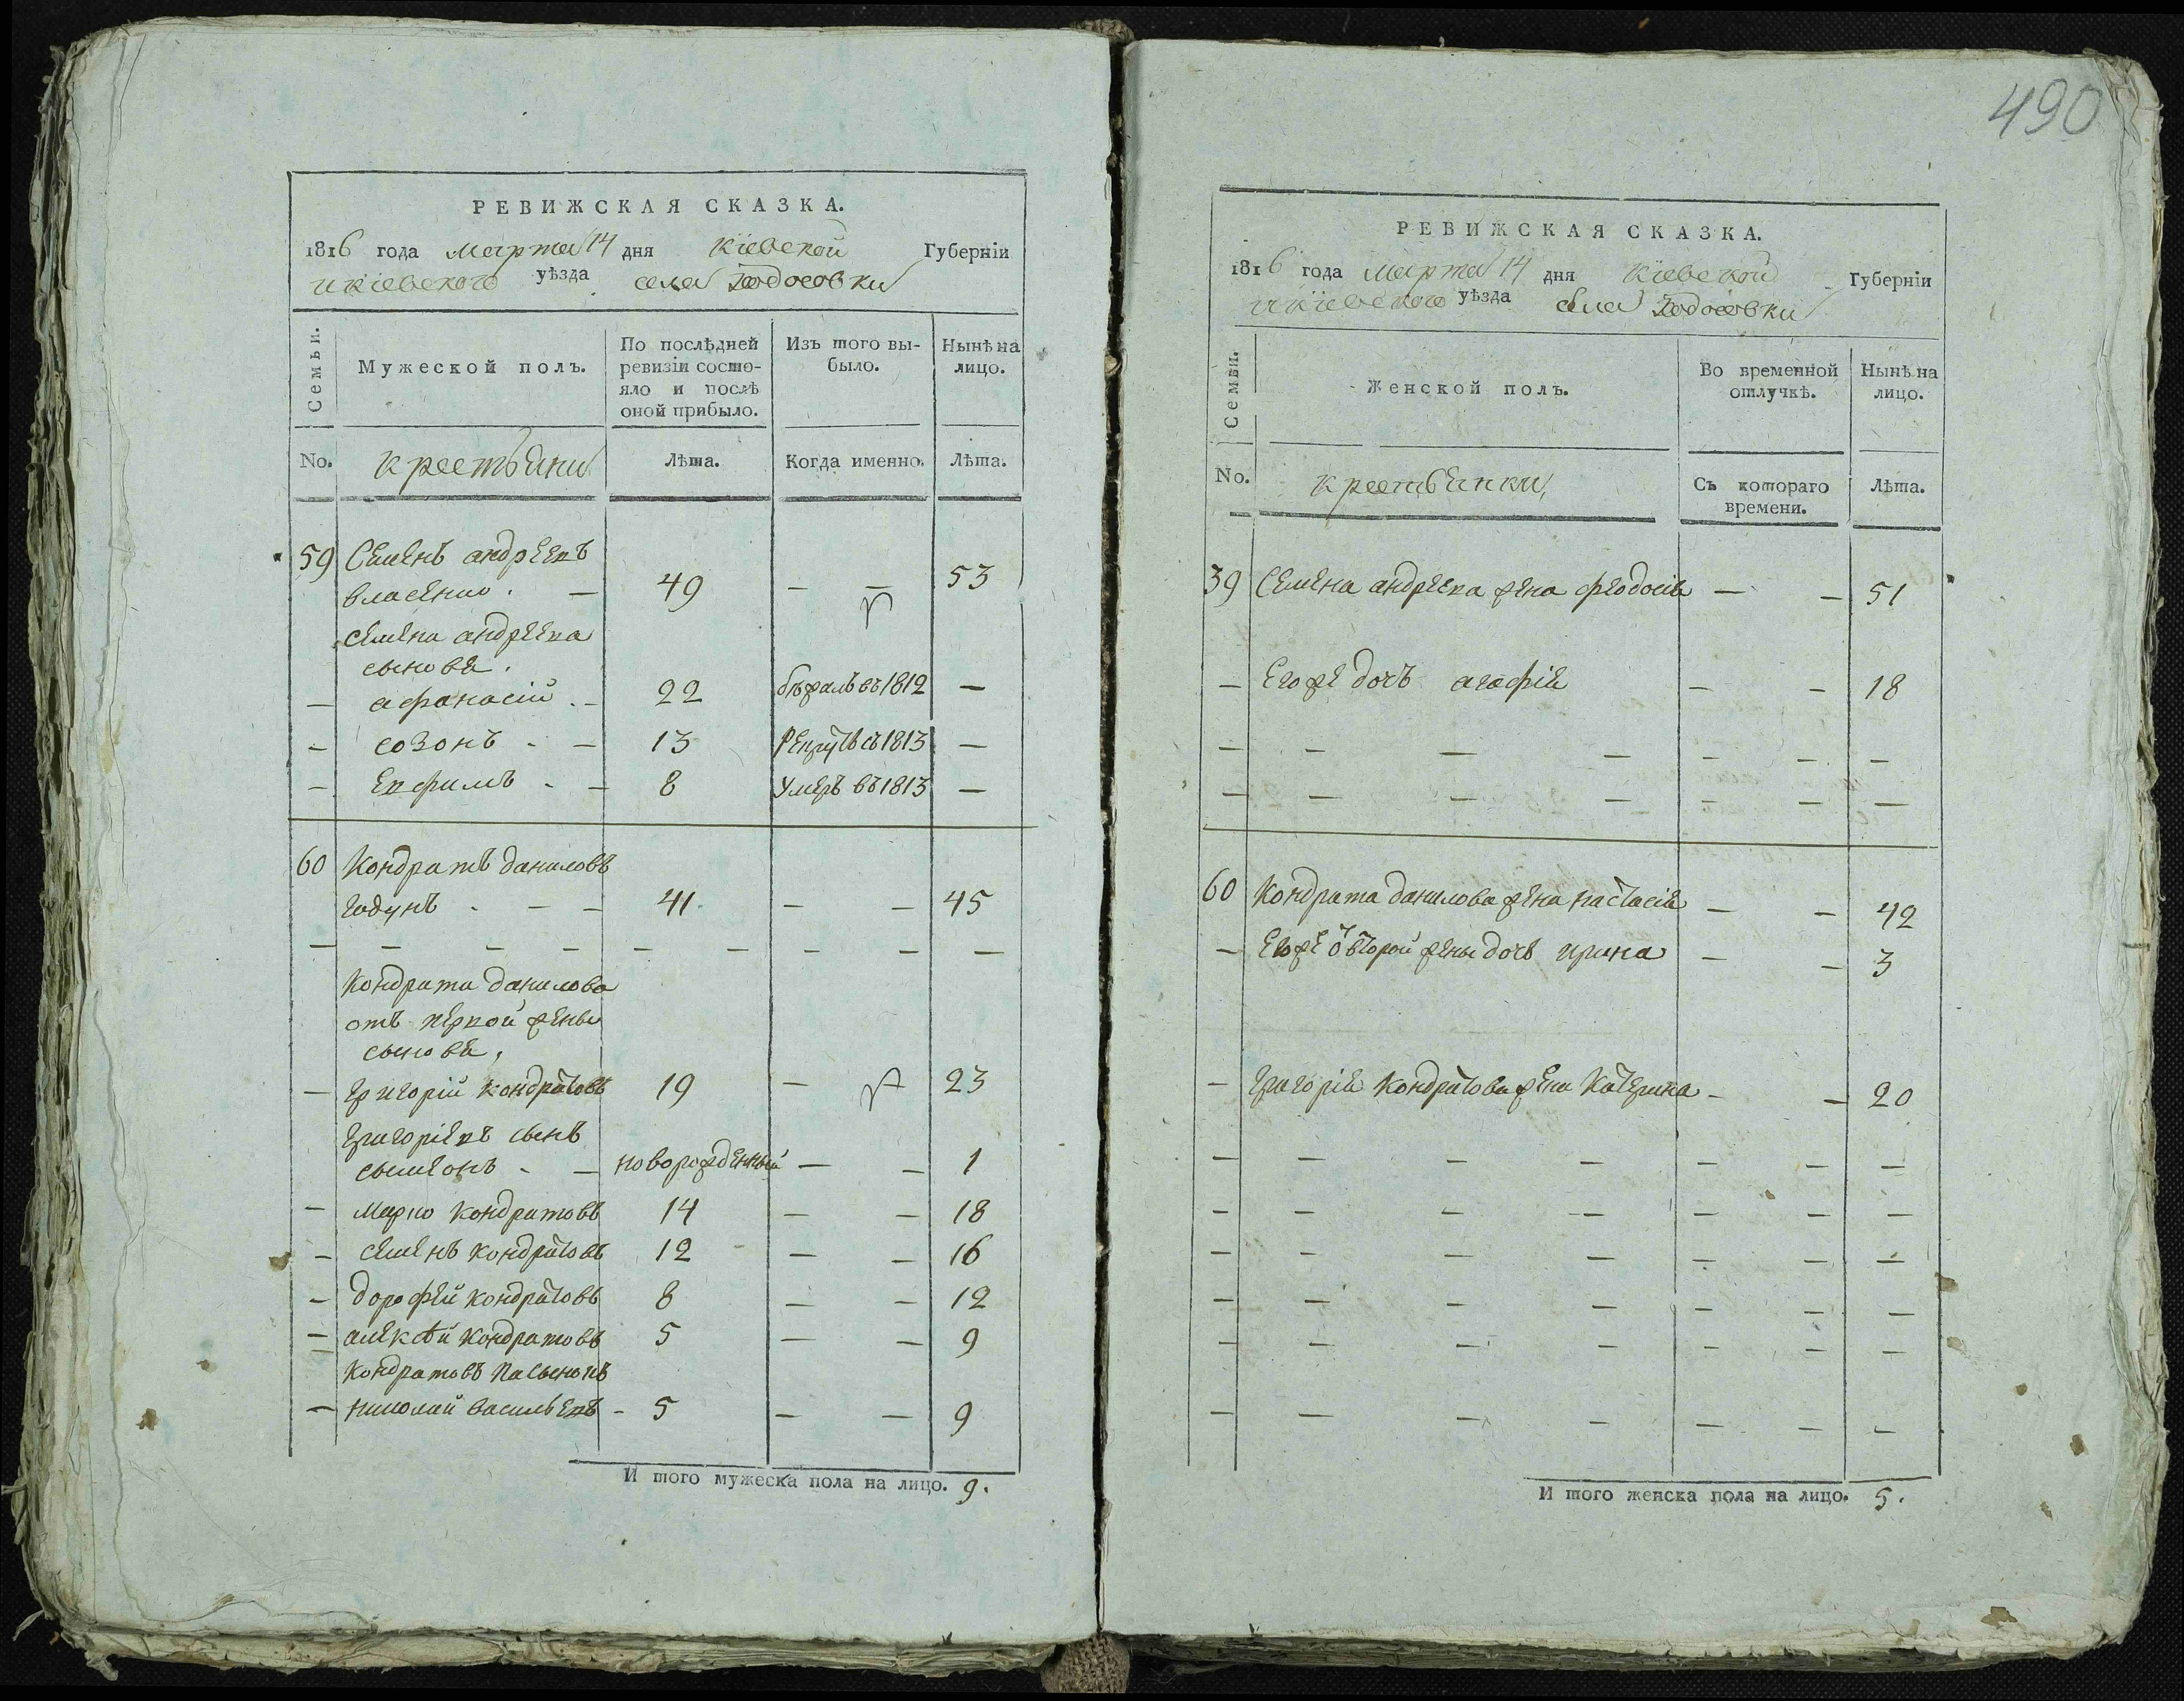 490
РЕВИЖСКАЯ СКАЗКА.
1816 года марта 14 дня Кіевской Губерніи
и кіевского уѣзда села Ходосовки
Семьи.
Мужеской полъ.
По послѣдней ревизіи состояло и послѣ оной прибыло.
Изъ того выбыло.
Нынѣ на лицо.
No. крестьяни Лѣта. Когда именно. Лѣта.
59 Семенъ андреевъ
власенко. — 49 — — 53
Семена андреева
сыновя.
— афанасій . - 22 бѣжалъ въ 1812 —
— созонъ - — 13 Рекрутъ съ 1813 —
— Евфимъ - — 8 Умеръ въ 1813 —
60 Кондратъ даниловъ
годунъ - — — 41 — — 45
— — — — — — — — —
Кондрата данилова
отъ первой жены
сыновя,
— григорій кондратовъ 19 — 23
григоріевъ сынъ
сымеонъ - — новорожденный — — 1
— марко кондратовъ 14 — — 18
— семенъ кондратовъ 12 — — 16
— дорофей кондратовъ 8 — — 12
— алексѣй кондратовъ 5 — — 9
Кондратовъ пасынокъ
— николай васильевъ - 5 — — 9
И того мужеска пола на лицо. 9.
РЕВИЖСКАЯ СКАЗКА.
1816 года марта 14 дня Кіевской Губерніи
и кіевского уѣзда села Ходосовки
Семьи.
Женской полъ.
Во временной отлучкѣ.
Нынѣ на лицо.
No. крестьянки, Съ котораго времени. Лѣта.
39 Семена андреева жена феодосія — — 51
— Егоже дочъ агафія — — 18
— — — — — — —
— — — — — — —
60 Кондрата данилова жена настасія — — 42
— Егоже ѿ второй жены дочъ ирина — — 3
— григорія кондратова жена катерина - — 20
— — — — — — —
— — — — — — —
— — — — — — —
— — — — — — —
— — — — — — —
— — — — — — —
И того женска пола на лицо. 5.